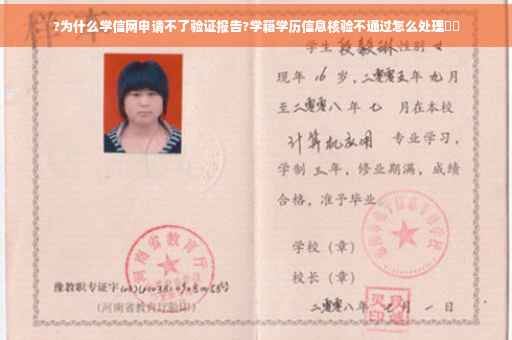 ?为什么学信网申请不了验证报告?学籍学历信息核验不通过怎么处理
样本
学生段毅琳性别女
现年16岁,二零零五年九月
至二零零八年七月在本校
计算机应用 专业学习,
学制三年,修业期满,成绩
合格,准予毕业
学校(章)
校长(章)
二零零八年七月一日
河南省教育厅
豫教职专证字
(河南省教育厅验印)